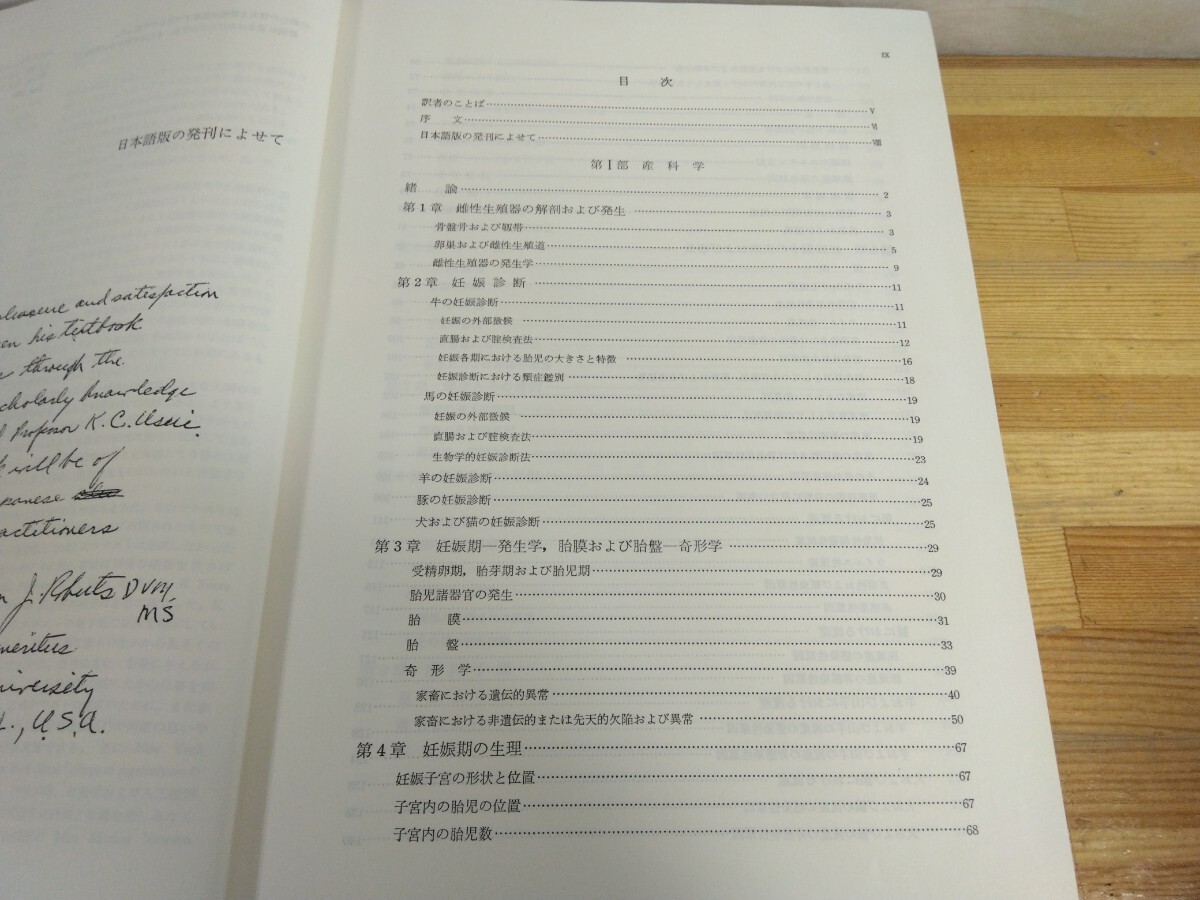 日本語版の発刊によせて
pleasure and satisfaction
his textbook
through the
scholarly knowledge
Professor K. C. Usui.
will be of
Japanese
practitioners
J. Roberts DVM,
MS
Emeritus
University
U.S.A.
IX
目 次
訳者のことば……V
序 文……VI
日本語版の発刊によせて……VIII
第I部 産科学
緒 論……2
第1章 雌性生殖器の解剖および発生……3
骨盤骨および靱帯……3
卵巣および雌性生殖道……5
雌性生殖器の発生学……9
第2章 妊娠診断……11
牛の妊娠診断……11
妊娠の外部徴候……11
直腸および腟検査法……12
妊娠各期における胎児の大きさと特徴……16
妊娠診断における類症鑑別……18
馬の妊娠診断……19
妊娠の外部徴候……19
直腸および腟検査法……19
生物学的妊娠診断法……23
羊の妊娠診断……24
豚の妊娠診断……25
犬および猫の妊娠診断……25
第3章 妊娠期―発生学，胎膜および胎盤―奇形学……29
受精卵期，胎芽期および胎児期……29
胎児諸器官の発生……30
胎 膜……31
胎 盤……33
奇形学……39
家畜における遺伝的異常……40
家畜における非遺伝的または先天的欠陥および異常……50
第4章 妊娠期の生理……67
妊娠子宮の形状と位置……67
子宮内の胎児の位置……67
子宮内の胎児数……68